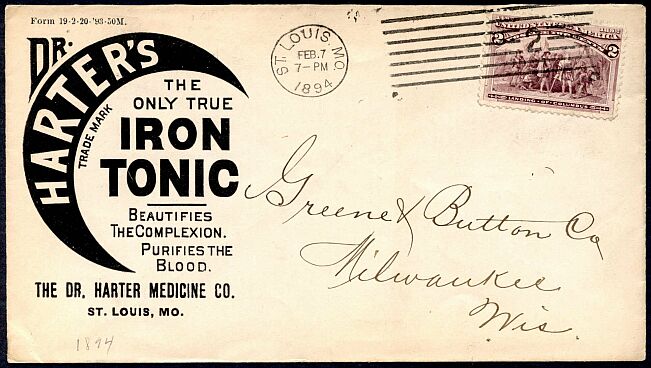 Form 19-2-20-'93-50M.
DR.
HARTER'S
TRADE MARK
THE
ONLY TRUE
IRON
TONIC
BEAUTIFIES
THE COMPLEXION.
PURIFIES THE
BLOOD.
THE DR. HARTER MEDICINE CO.
ST. LOUIS, MO.
1894
ST. LOUIS, MO.
FEB. 7
7-PM
1894
1492 1892
UNITED STATES OF AMERICA
2 2
LANDING OF COLUMBUS
Greene & Button Co
Milwaukee
Wis.